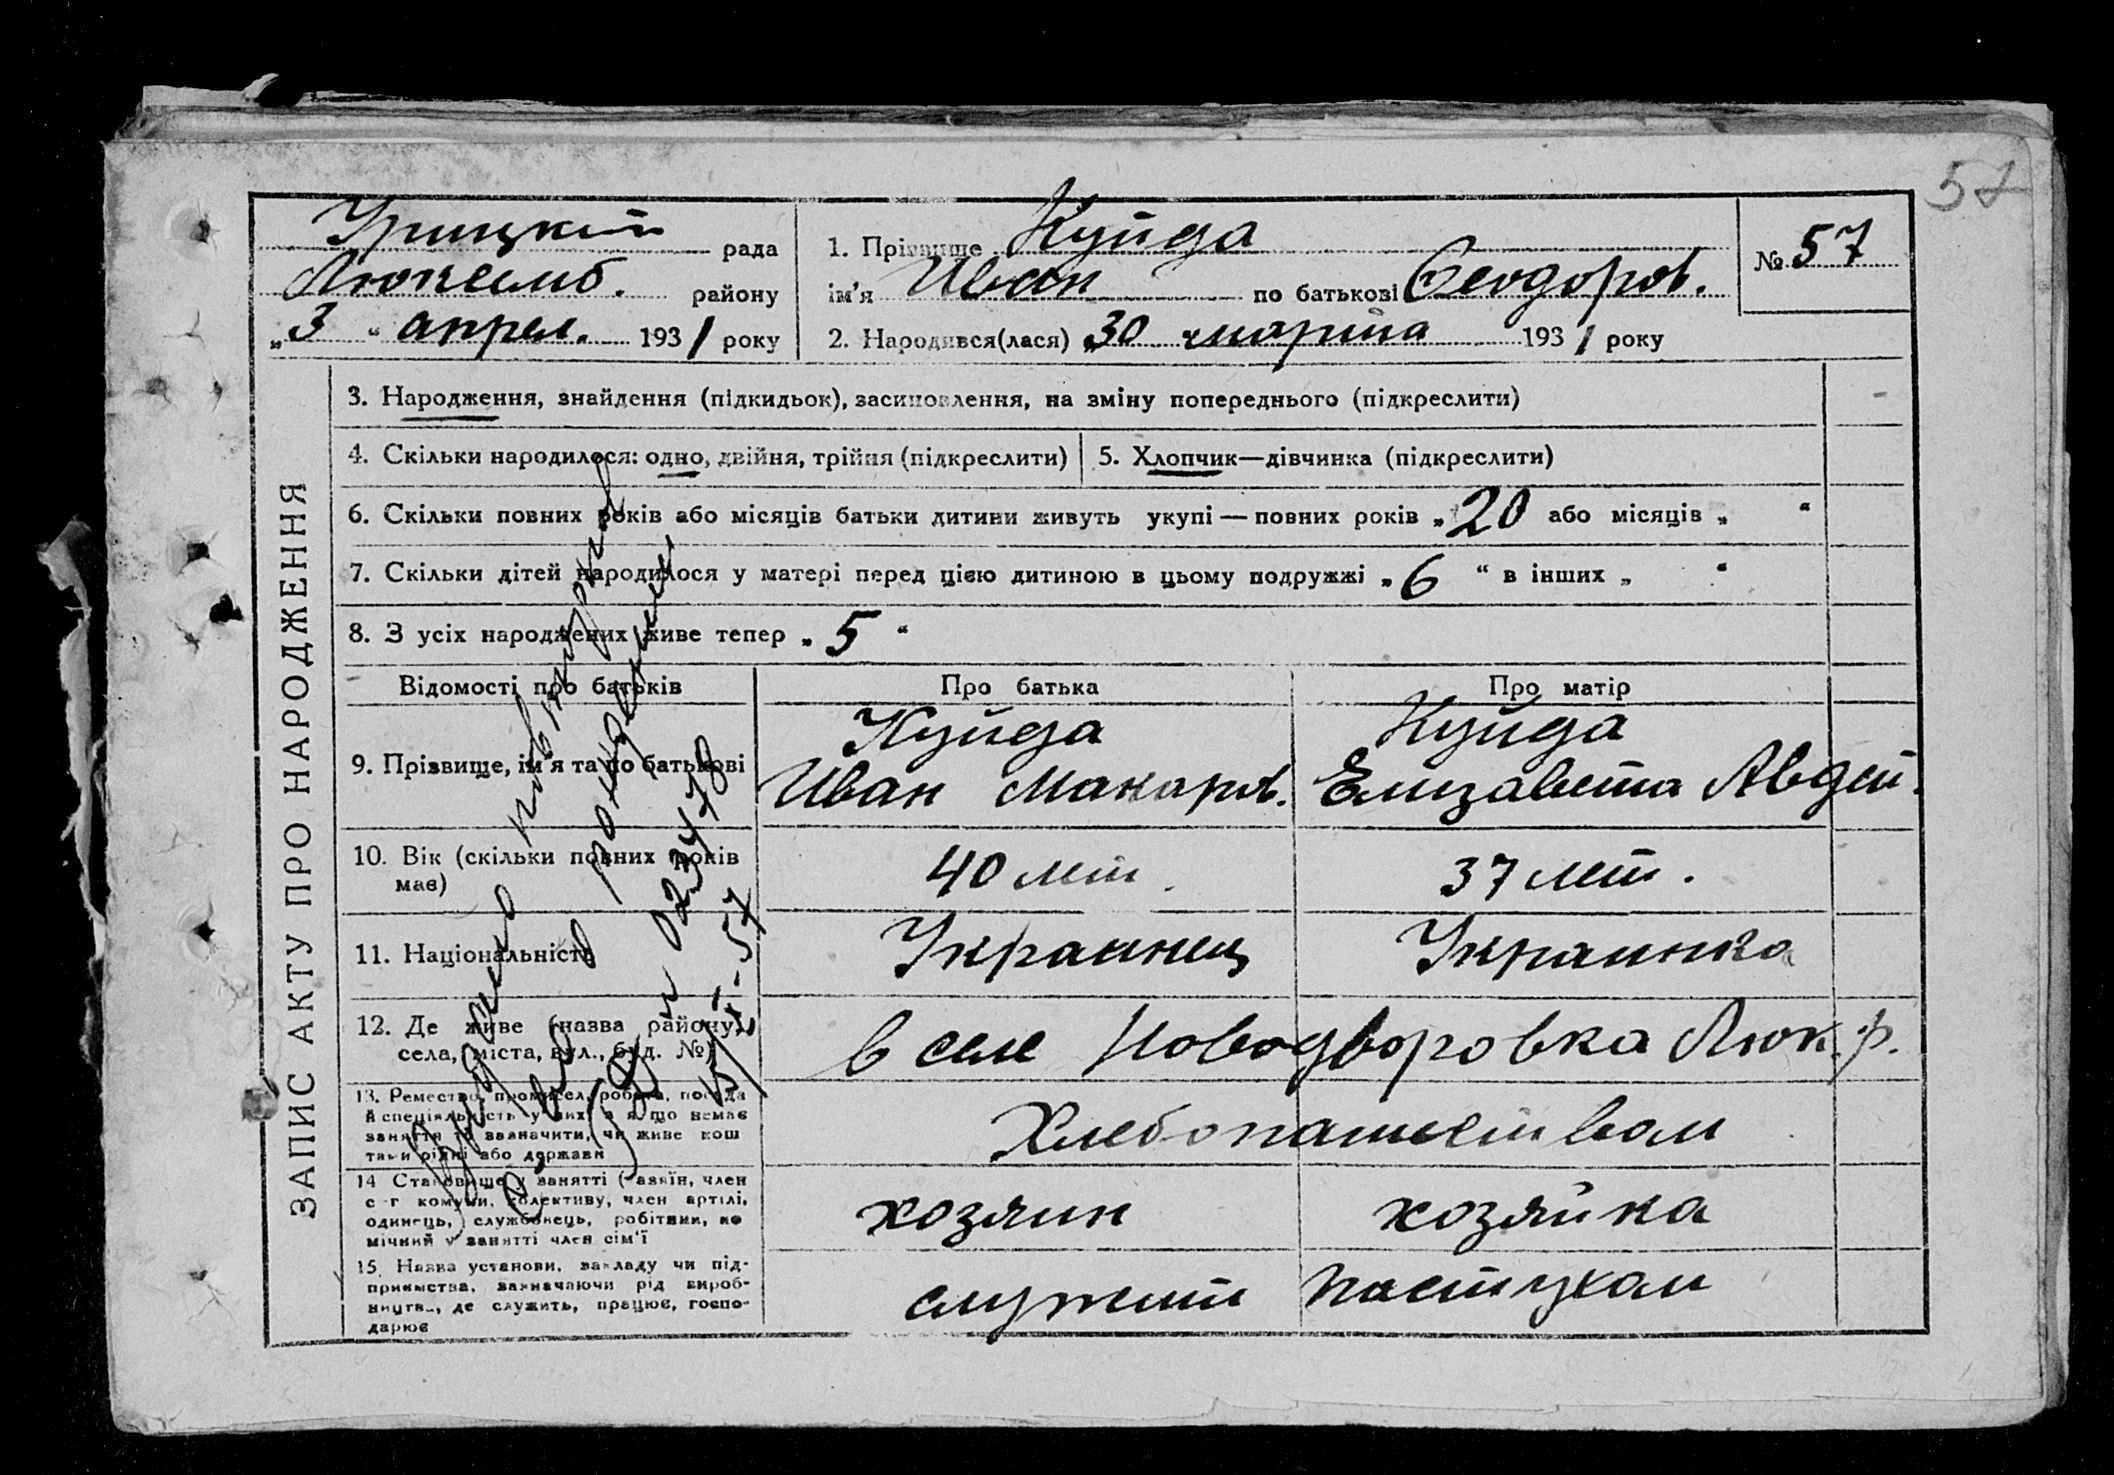 57
Урицкий рада
Люксемб. району
„3“ апрел. 1931 року
1. Прізвище Куйда
ім'я Иван по батькові Феодоров.
№ 57
2. Народився(лася) „30 марта 1931 року
ЗАПИС АКТУ ПРО НАРОДЖЕННЯ
3. Народження, знайдення (підкидьок), засиновлення, на зміну попереднього (підкреслити)
4. Скільки народилося: одно, двійня, трійня (підкреслити)
5. Хлопчик—дівчинка (підкреслити)
6. Скільки повних років або місяців батьки дитини живуть укупі — повних років „20 або місяців „ “
7. Скільки дітей народилося у матері перед цією дитиною в цьому подружжі „6“ в інших „ “
8. З усіх народжених живе тепер „5“
Відомості про батьків Про батька Про матір
9. Прізвище, ім'я та по батькові
Куйда
Иван Макаров.
Куйда
Елизавета Авдей.
10. Вік (скільки повних років
має)
40 лет.
37 лет.
11. Національність
Украинец
Украинка
12. Де живе (назва району,
села, міста, вул., буд. №)
в селе Новодворовка Люк. р.
13. Ремество, промисел, робота, посада
й спеціяльність у них, а якщо немає
заняття то зазначити, чи живе кош
тами рідні або держави
Хлебопашеством
14. Становище у занятті (хазяїн, член
с-г комуни, колективу, член артілі,
одинець, службовець, робітник, по
мічний у занятті член сім'ї
хозяин
хозяйка
15. Назва установи, закладу чи під-
приємства, зазначаючи рід вироб-
ництва, де служить, працює, госпо-
дарює
служит пастухом
Выдано повторное
с-во о рождении
023478
57